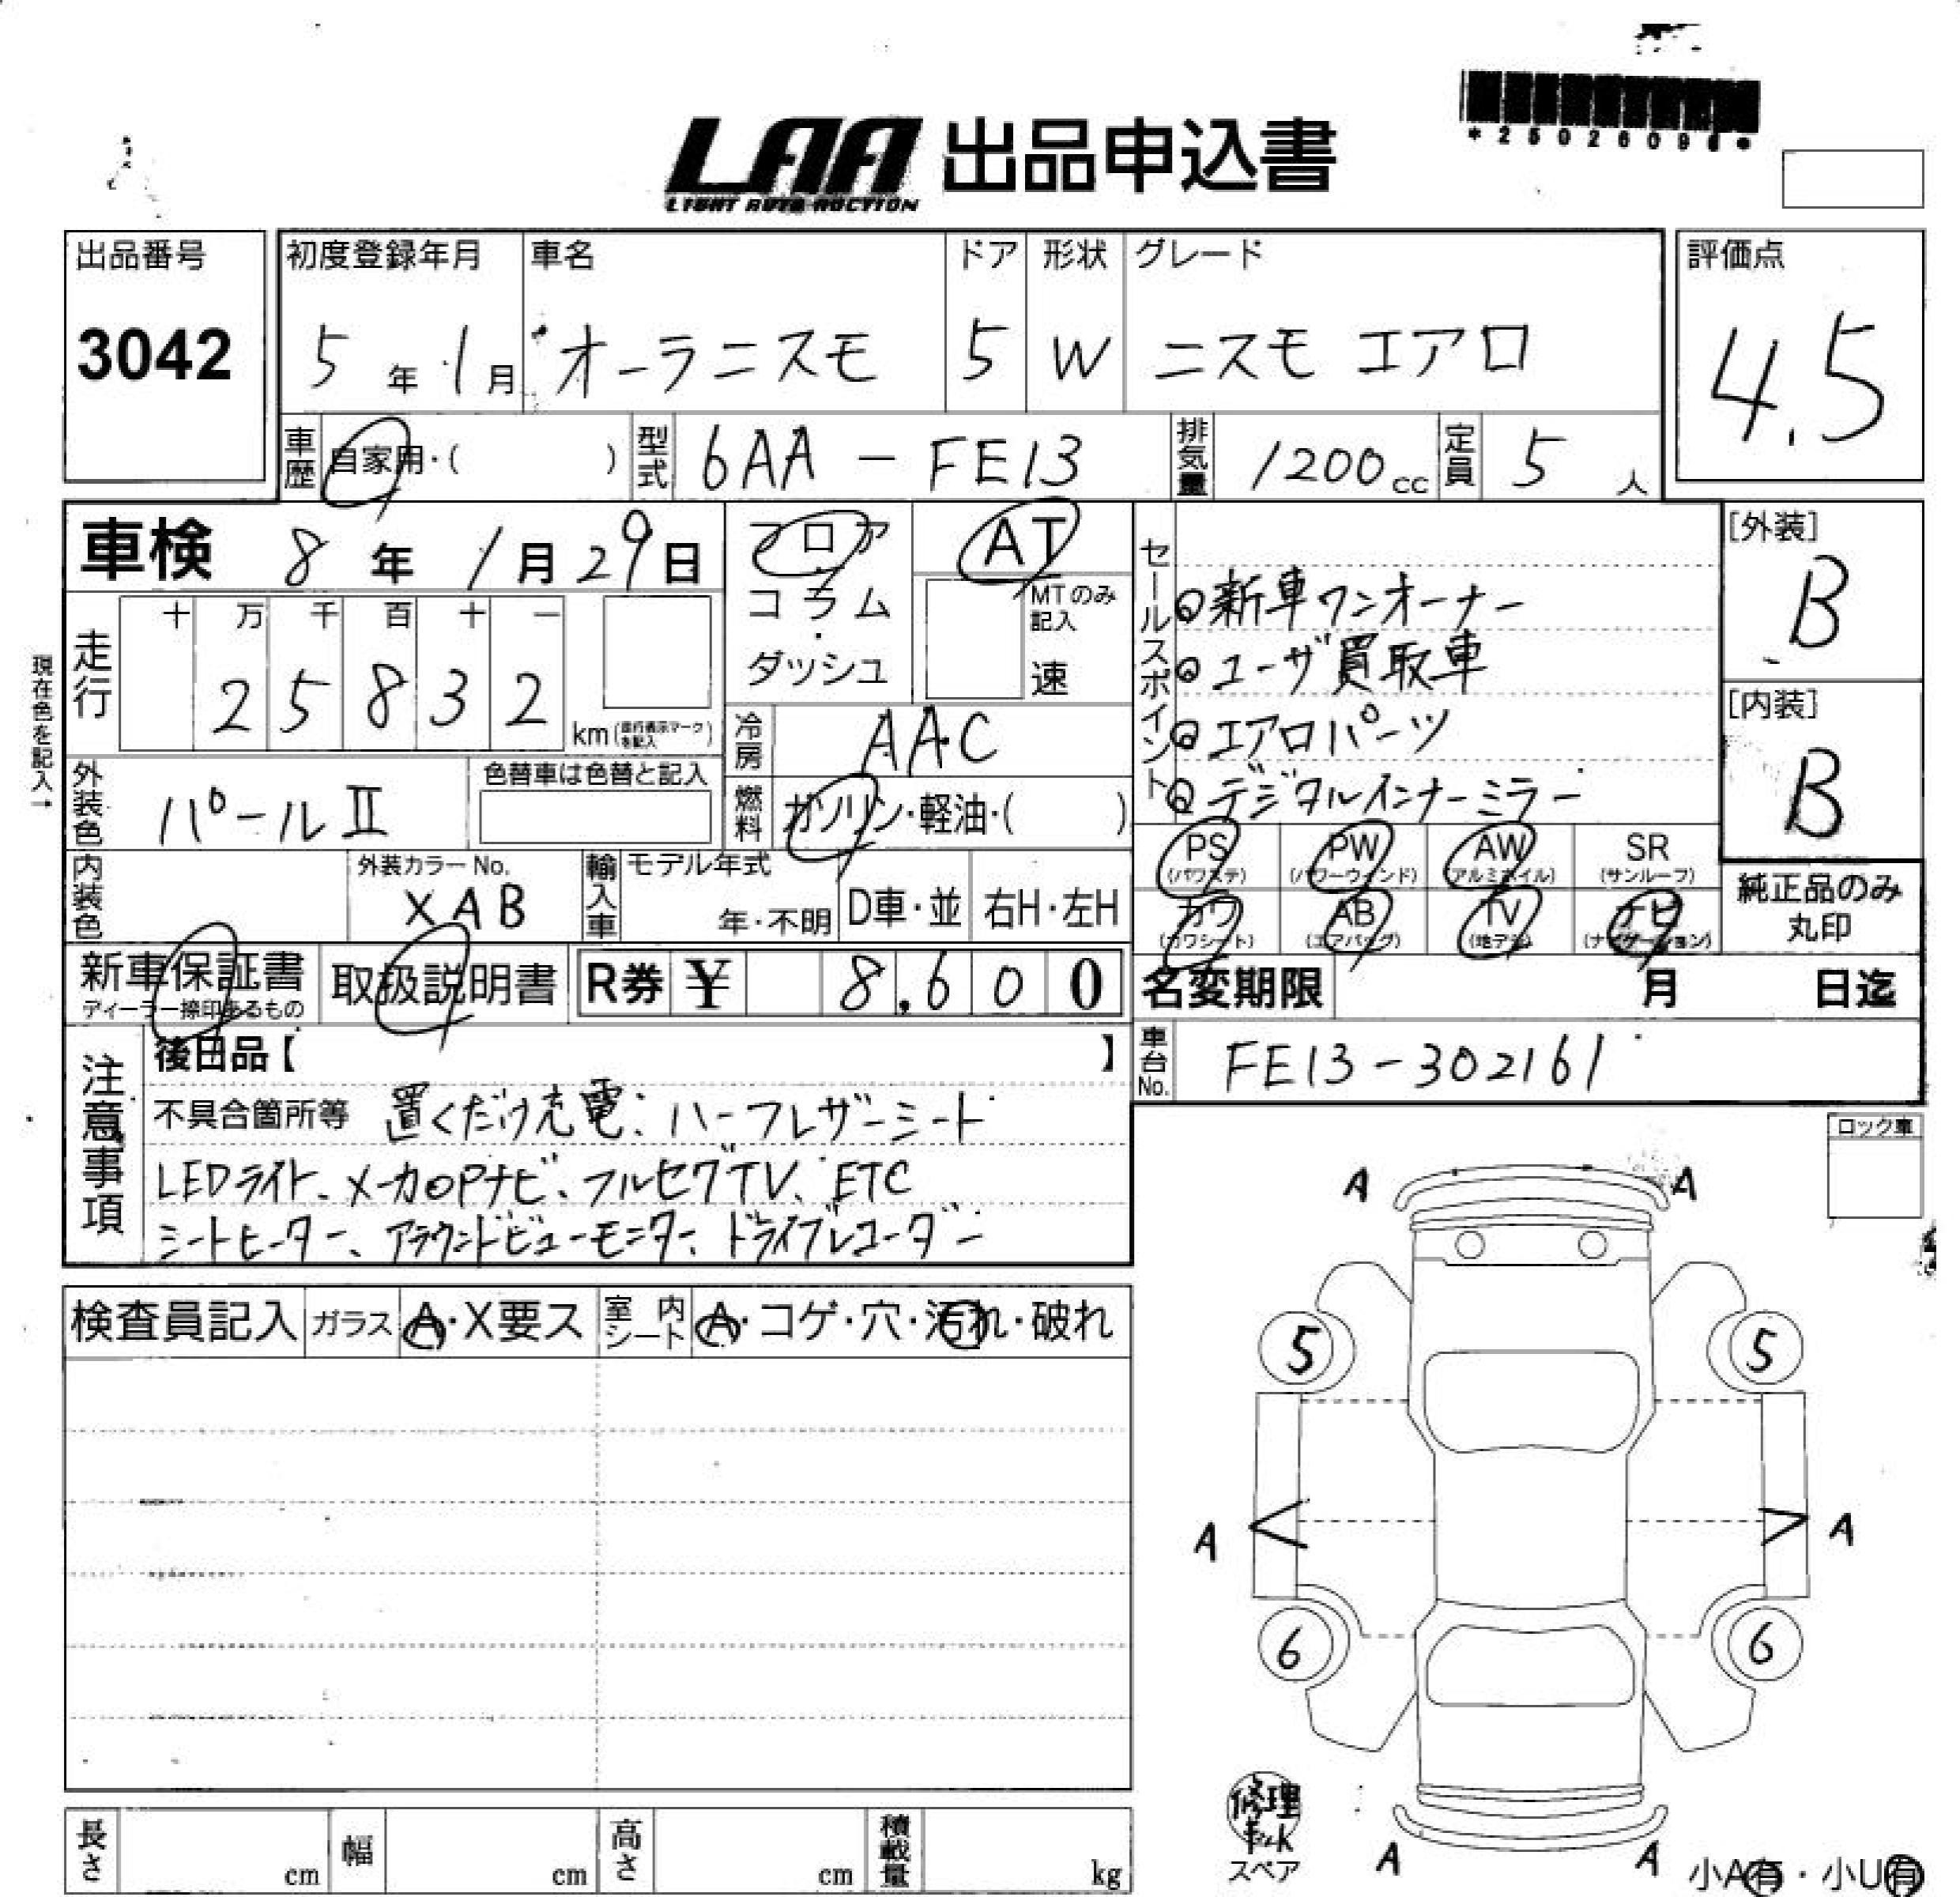 *25026096*
LAA 出品申込書
LIGHT AUTO AUCTION
出品番号
3042
初度登録年月 車名 ドア 形状 グレード
5年1月 オーラニスモ 5 W ニスモ エアロ
評価点
4.5
車歴 自家用・( ) 型式 6AA-FE13 排気量 1200cc 定員 5人
車検 8年1月29日
フロア・コラム・ダッシュ
AT
MTのみ記入
速
現在色を記入→
走行 十万千百十一
25832
km(走行表示マークを記入)
冷房 AAC
外装色 パールⅡ 色替車は色替と記入
燃料 ガソリン・軽油・( )
内装色 外装カラーNo. XAB
輸入車 モデル年式 年・不明 D車・並 右H・左H
セールスポイント
◎新車ワンオーナー
◎ユーザ買取車
◎エアロパーツ
◎デジタルインナーミラー
[外装]
B
[内装]
B
PS (パワステ) PW (パワーウィンド) AW (アルミホイル) SR (サンルーフ)
カワ (カワシート) AB (エアバッグ) TV (地デジ) ナビ (ナビゲーション)
純正品のみ丸印
新車保証書 ディーラー捺印あるもの 取扱説明書 R券 ¥ 8,600
名変期限 月 日迄
車台No. FE13-302161
注意事項
後日品【 】
不具合箇所等 置くだけ充電、ハーフレザーシート
LEDライト、メーカOPナビ、フルセグTV、ETC
シートヒーター、アラウンドビューモニター、ドライブレコーダー
ロック車
検査員記入 ガラス A・X要ス 室内シート A・コゲ・穴・汚れ・破れ
A A
5 5
A A
6 6
A A
修理キット
スペア
小A有・小U有
長さ cm 幅 cm 高さ cm 積載量 kg